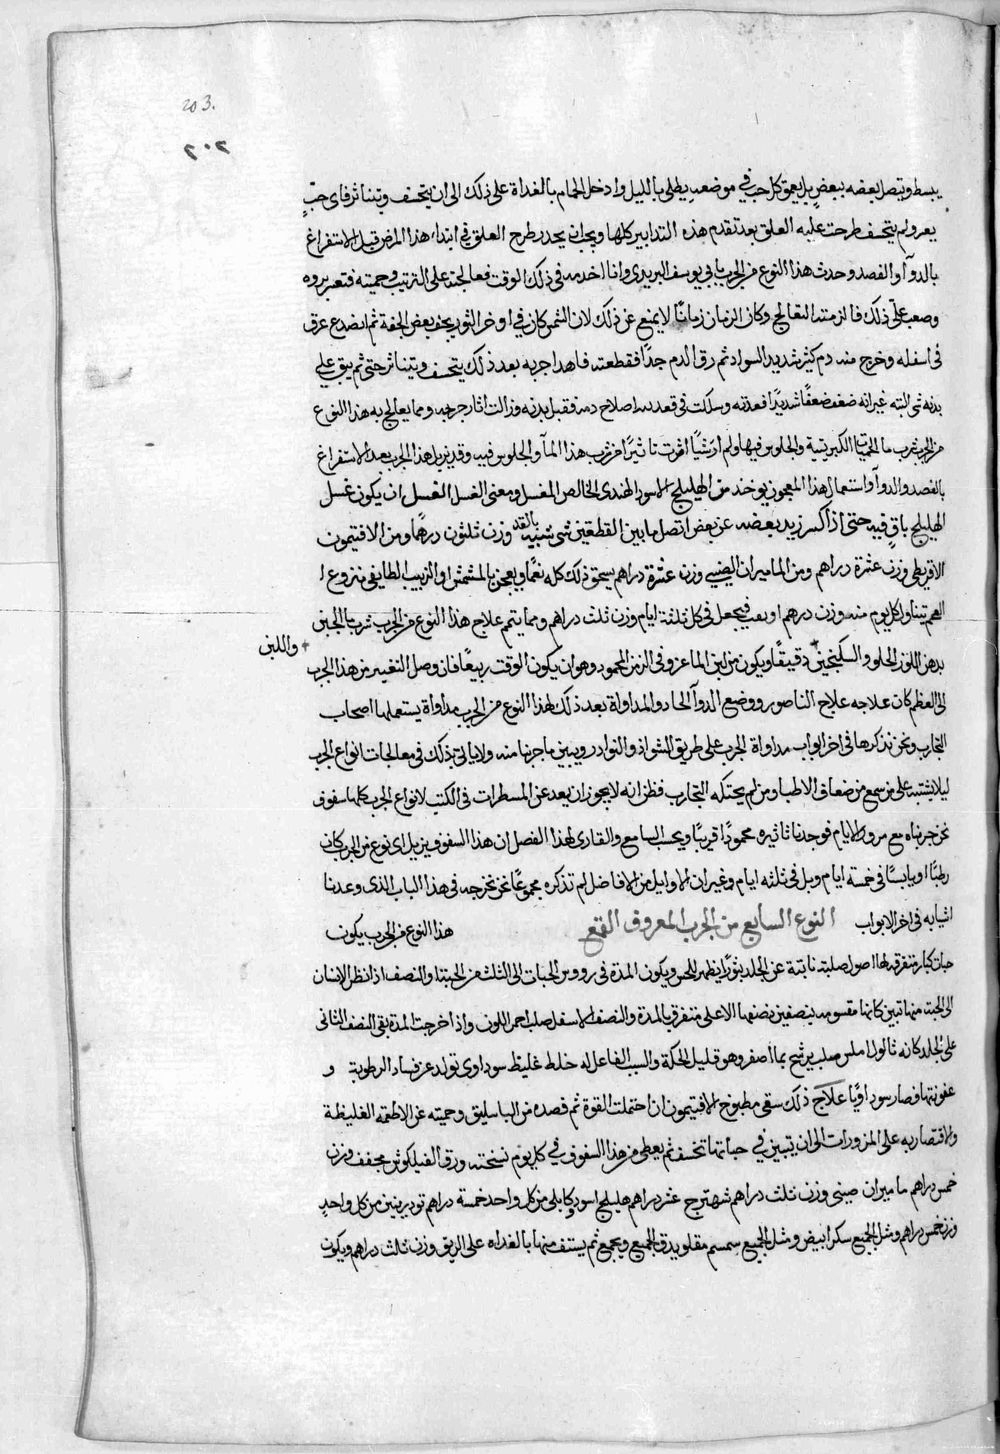 203.
٢٠٢
يبسط ويتصل بعضه ببعض بل يعمق كل حب في موضعه يطلي بالليل وادخل الحمام بالغداة على ذلك الى ان يتحسف ويتناثر فاى حب
يعر ولم يتحسف طرحت عليه العلق بعد تقدم هذه التدابير كلها ويجب ان يحذر طرح العلق في ابتداء هذا المرض قبل الاستفراغ
بالدوآ والفصد وحدث هذا النوع من الجرب بابي يوسف البريدي وانا اخدمه في ذلك الوقت فعالجته على الترتيب وحميته فتعسر بروه
وصعب على ذلك فالزمته التعالج وكان الزمان زمانًا لا يمنع عن ذلك لان الشمس كان في اوخر الثور يجف بعض الجفة ثم انصدع عرق
في اسفله وخرج منه دم كثير شديد السواد ثم رق الدم جدًا فقطعته فاهدا جربه بعد ذلك يتحسف ويتناثر حتى ثم يبق علي
بدنه شي البته غير انه ضعف ضعفًا شديدًا فعدته وسلكت في قعديه اصلاح دمه فقبل بدنه وزالت اثار جربه ومما يعالج به هذا النوع
من الجرب شرب ما الحمياتا الكبريتية والجلوس فيها ولم ار شيًا اقوت تاثيرًا من شرب هذا المآ والجلوس فيه وقد يزيل هذا الجرب بعد الاستفراغ
بالفصد والدوآ واستعمال هذا المعجون يوخذ من الهليلج الاسود الهندي الخالص المغسل ومعنى الغسل الغسل ان يكون غسل
الهليلج باقٍ فيه حتى اذا كسر زيد بعضه عن بعض اتصل ما بين القطعتين شي شبيه بالقد وزن ثلثون درهمًا ومن الافتيمون
الاقريطي وزن عشرة دراهم ومن الماميران الصيني وزن عشرة دراهم يسحق ذلك كله نعمًا ويعجن بالمشمش او الزبيب الطايفي منزوع ا
لعجم يتناول كل يوم منه وزن درهم او يعب فيجعل في كل ثلثة ايام وزن ثلث دراهم ومما يتمم علاج هذا النوع من الجرب شرب ما الجبن
واللبن
بدهن اللوز الحلو والسكنجبين دقيقًا ويكون من لبن الماعز وفي الزمن المحمود وهو ان يكون الوقت ربيعًا فان وصل التغيير من هذا الجرب
الى العظم كان علاجه علاج الناصور ووضع الدوآ الحاد والمداواة بعد ذلك لهذا النوع من الجرب مداواة يستعملها اصحاب
التجارب ونحن نذكرها في اخر ابواب مداواة الجرب على طريق الشواذ والنوادر ويبين ما جربنا منه ولا ياتي بذلك في معالجات انواع الجرب
ليلا يشتبه على من سمع من ضعاف الاطبا ومن لم يحتكه التجارب فظن انه لا يجوز ان يعد عن المسطرات في الكتب لانواع الجرب كلها سفوف
نحن جربناه مع مرور الايام فوجدنا تاثيره محمودًا قريبًا ويحب السامع والقارى لهذا الفصل ان هذا السفوف يزيل اى نوع من الجرب كان
رطبًا او يابسًا في خمسة ايام وبل في ثلثه ايام وغير ان الاوايل من الافاضل لم تذكره مجموعًا نحن نخرجه في هذا الباب الذى وعدنا
اثباته في اخر الابواب النوع السابع من الجرب المعروف القمع هذا النوع من الجرب يكون
حبات كبار متفرقة لها اصول صلبة نابتة عن الجلد بثورًا يظهر للحس ويكون المدة في رووس الحبات الى الثلث من الحبة او النصف اذا نظر الانسان
الى الحبة منها تبين كانها مقسومه بنصفين نصفها الاعلى متفرق بالمدة والنصف الاسفل صلب احمر اللون واذا خرجت المدة بقى النصف الثانى
على الجلد كانه ثالول املس صلب يرشح بما اصفر وهو قليل الحكة والسبب الفاعل له خلط غليظ سوداوى تولد عن فساد الرطوبة و
عفونتها فصار سوداويًا علاج ذلك سقى مطبوخ الافتيمون ان احتملت القوة ثم فصده من الباسليق وحميته عن الاطعمه الغليظة
والاقتصار به على المزورات الى ان تبين في حباتها تحسف ثم يعطى من هذا السفوف في كل يوم نسخته ورق الفيلكوش مجفف وزن
خمس دراهم ماميران صيني وزن ثلث دراهم شهترج عشر دراهم هليلج اسود وكابلى من كل واحد خمسة دراهم تودريين من كل واحد
وزن خمس دراهم ومثل الجميع سكر ابيض ومثل الجميع سمسم مقلو يدق الجميع ويجمع ثم يستف منها بالغداه على الريق وزن ثلث دراهم ويكون